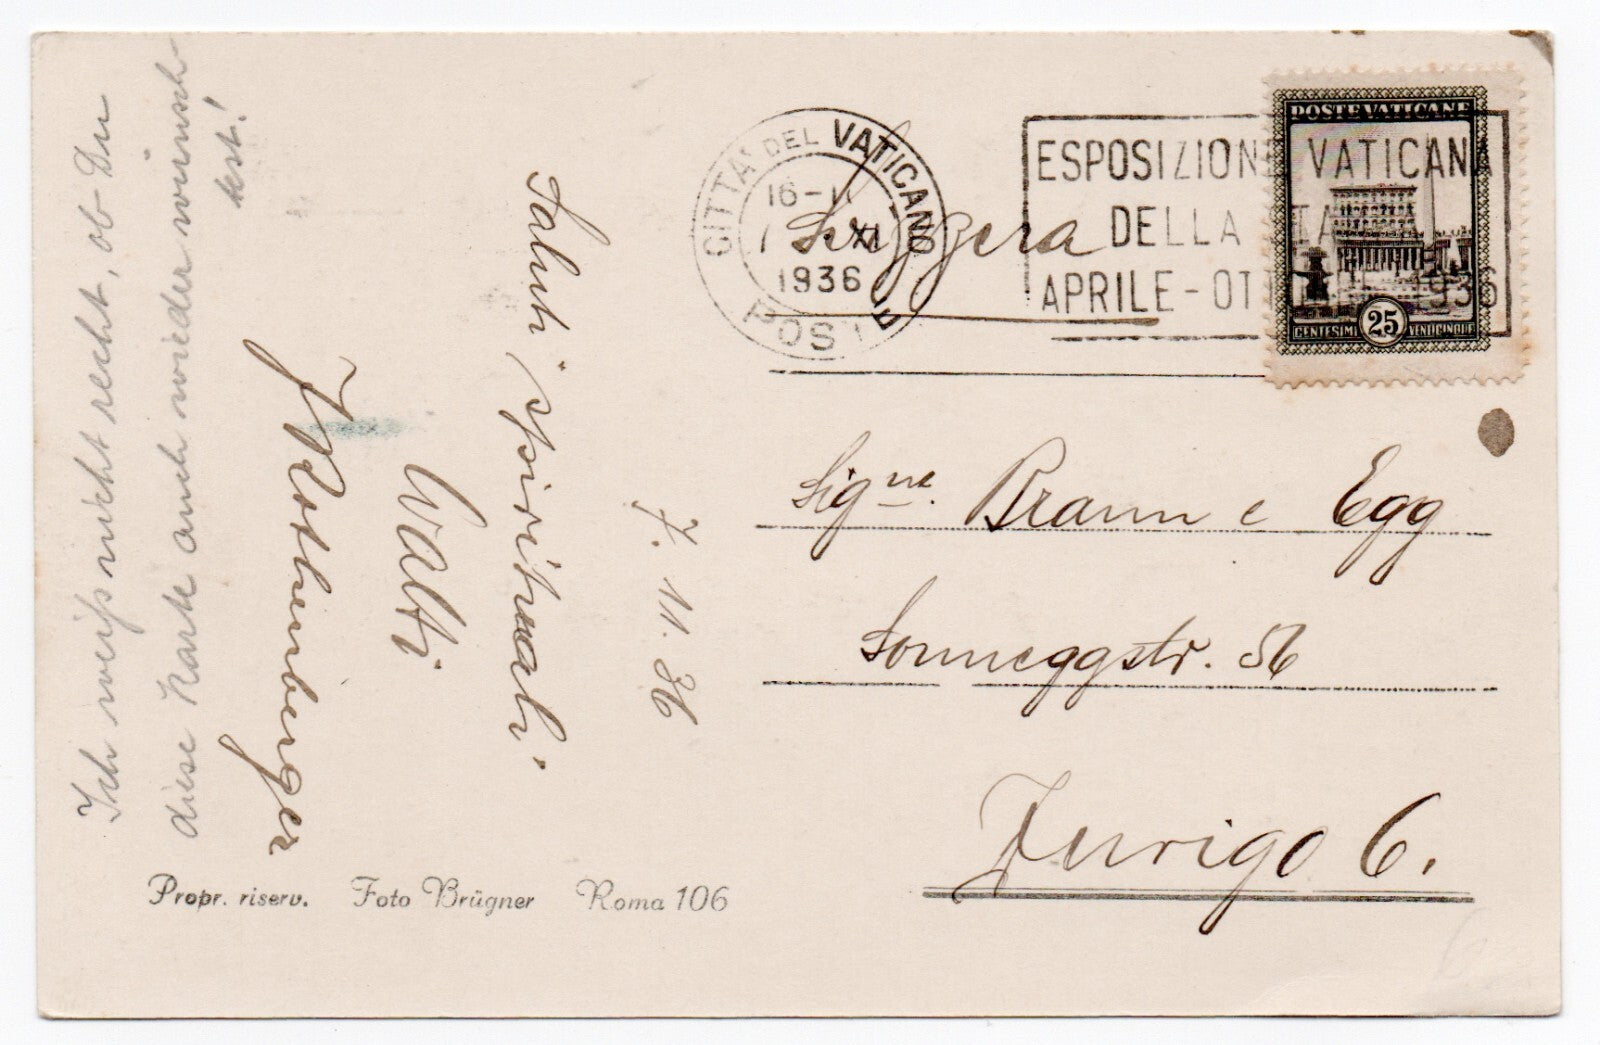 Ich weiss nicht recht, ob Du
diese Karte auch wieder wünsch-
test!
Saluti "spirituali"
Walti
J Rothenberger
7. 11. 36
Propr. riserv. Foto Brügner Roma 106
CITTA' DEL VATICANO
16-1
7 XI
1936
POSTE
ESPOSIZIONE VATICANA
DELLA STAMPA
APRILE-OTTOBRE 1936
POSTE VATICANE
CENTESIMI 25 VENTICINQUE
Svizzera
Sigⁿᵉ. Braun e Egg
Sonneggstr. 56
Zurigo 6.